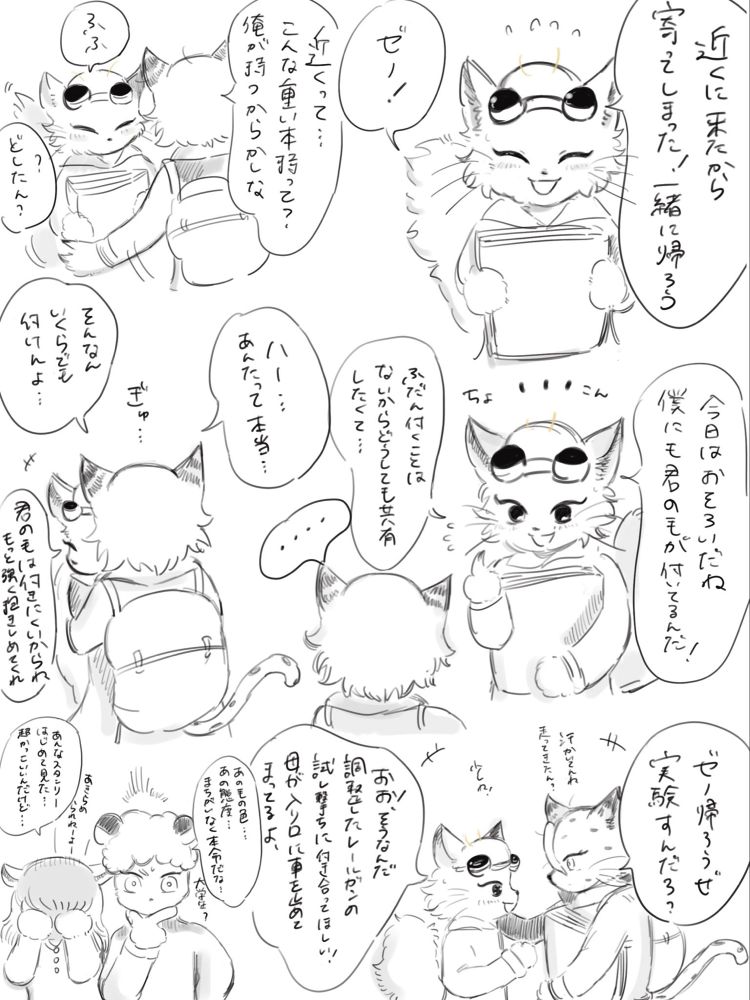 近くに来たから
寄ってしまった!
一緒に帰ろう
ゼノ!
近くって…
こんな重い本持って?
俺が持つからかしな
ふふ
??
どしたん?
今日はおそろいだね
僕にも君の毛が付いてるんだ!
ちょこん
ふだん付くことは
ないからどうしても共有
したくて…
....
ハー…
あんたって本当…
ぎゅ…
そんなん
いくらでも
付けんよ…
君の毛は付きにくいからね
もっと強く抱きしめてくれ
ゼノ帰ろうぜ
実験すんだろ?
汗かいてんね
走ってきたん?
おお、そうなんだ
調整したレールガンの
試し撃ちに付き合ってほしい!
母が入り口に車を止めて
まってるよ、
あの毛の色…
あの態度…
まちがいなく本命だな…
大学生?
あきらめ
られねーよー
あんなスタンリー
はじめて見た…
超かっこいいんだけど…